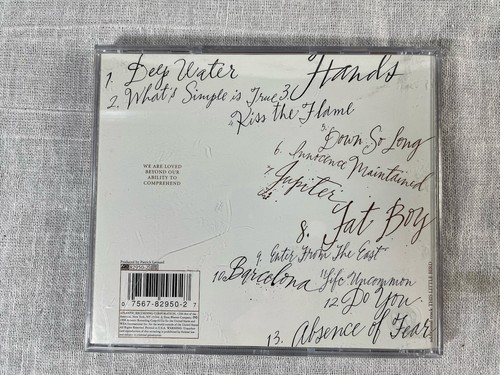 1. Deep Water
2. What's Simple is True
3. Hands
4. Kiss the Flame
5. Down So Long
6. Innocence Maintained
7. Jupiter
8. Fat Boy
9. Enter From The East
10. Barcelona
11. Life Uncommon
12. Do You
13. Absence of Fear
WE ARE LOVED
BEYOND OUR
ABILITY TO
COMPREHEND
Produced by Patrick Leonard
82950-2
0 7567-82950-2 7